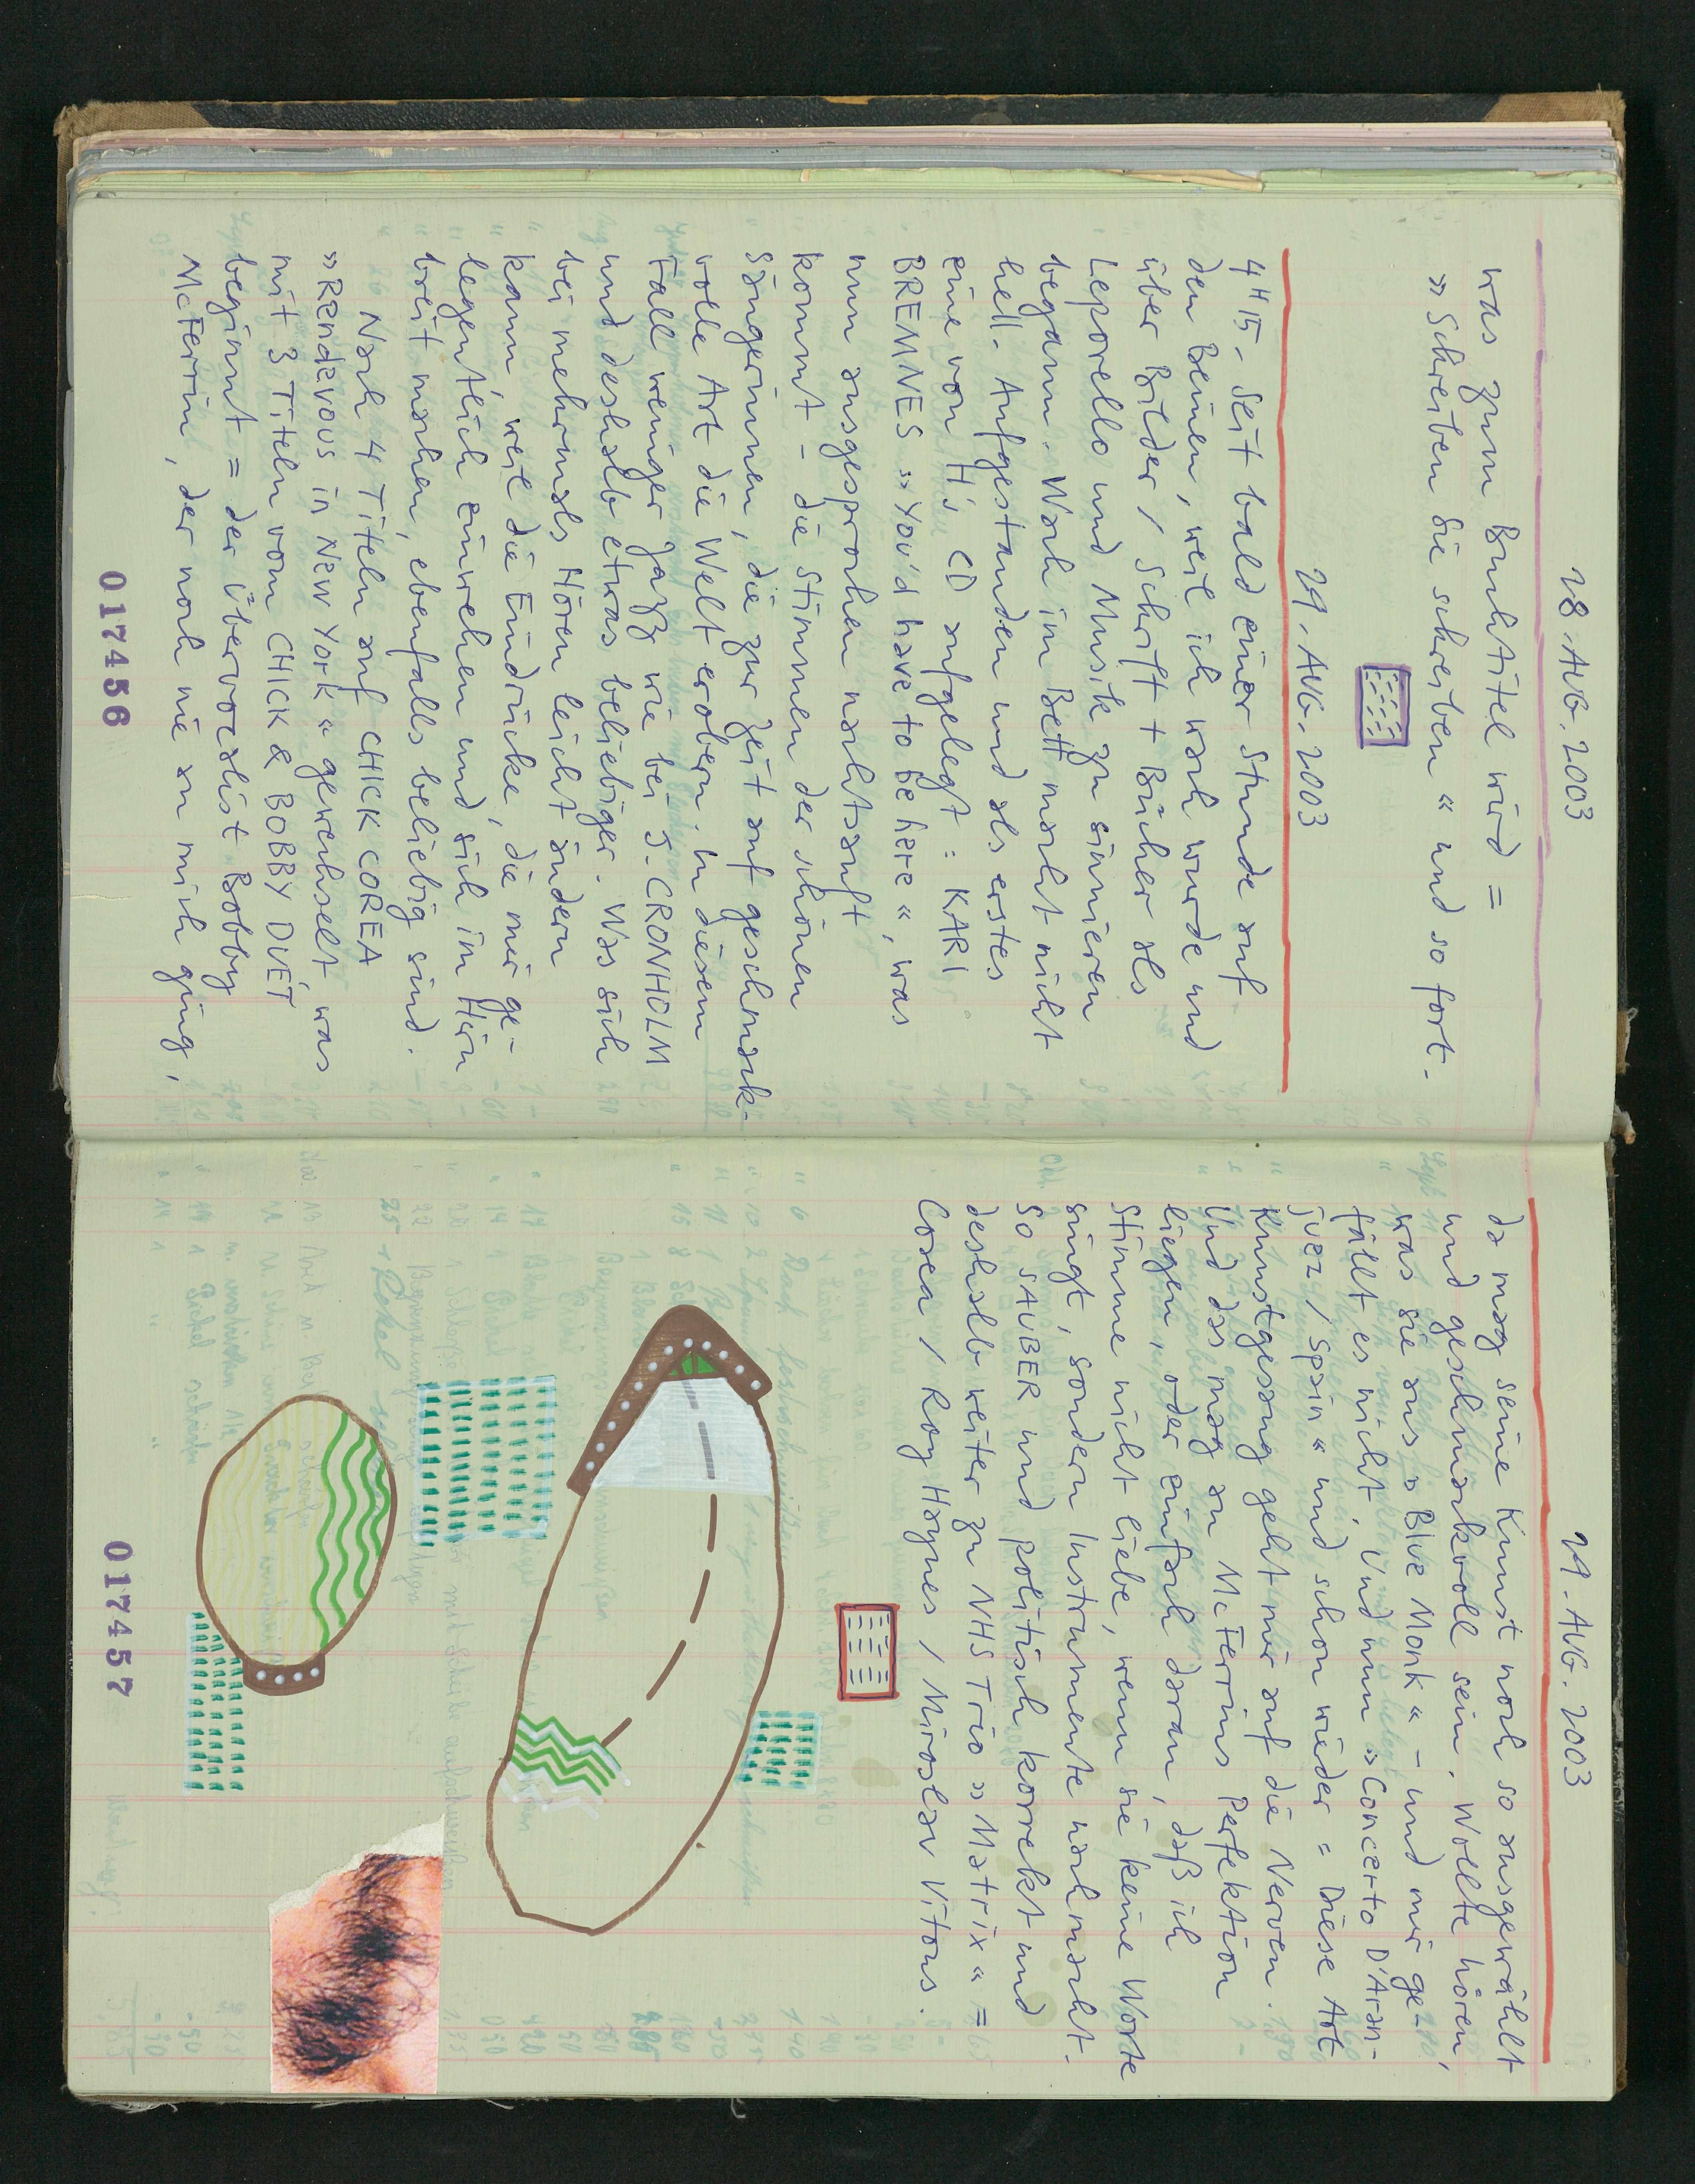 28. AUG. 2003
was zum Buchtitel wird =
»Schreiben Sie schreiben« und so fort.
29. AUG. 2003
4H15. Seit bald einer Stunde auf
den Beinen, weil ich wach wurde und
über Bilder / Schrift + Bücher als
Leporello und Musik zu sinnieren
begann. Wach im Bett macht nicht
hell. Aufgestanden und als erstes
eine von H's CD aufgelegt: KARI
BREMNES »You'd have to be here«, was
nun ausgesprochen nachtsanft
kommt - die Stimmen der schönen
Sängerinnen, die zur Zeit auf geschmack-
volle Art die Welt erobern. In diesem
Fall weniger Jazz wie bei J. CRONHOLM
und deshalb etwas beliebiger. Was sich
bei mehrmals Hören leicht ändern
kann, weil die Eindrücke, die mir ge-
legentlich einwehen und sich im Hirn
breit machen, ebenfalls beliebig sind.
Nach 4 Titeln auf CHICK COREA
»Rendevous in New York« gewechselt, was
mit 3 Titeln vom CHICK & BOBBY DUET
beginnt = der Übervocalist Bobby
McFerrin, der noch nie an mich ging,
017456
29. AUG. 2003
da mag seine Kunst noch so ausgewählt
und geschmackvoll sein. Wollte hören,
was sie aus »Blue Monk« - und mir ge-
fällt es nicht. Und nun »Concerto D'Aran-
juez / Spain« und schon wieder = Diese Art
Kunstgesang geht mir auf die Nerven.
Und das mag an McFerrins Perfektion
liegen, oder einfach daran, daß ich
Stimme nicht liebe, wenn sie keine Worte
singt, sondern Instrumente nachmacht.
So SAUBER und politisch korrekt und
deshalb weiter zu NHS Trio »Matrix« =
Corea / Roy Haynes / Miroslav Vitous.
017457